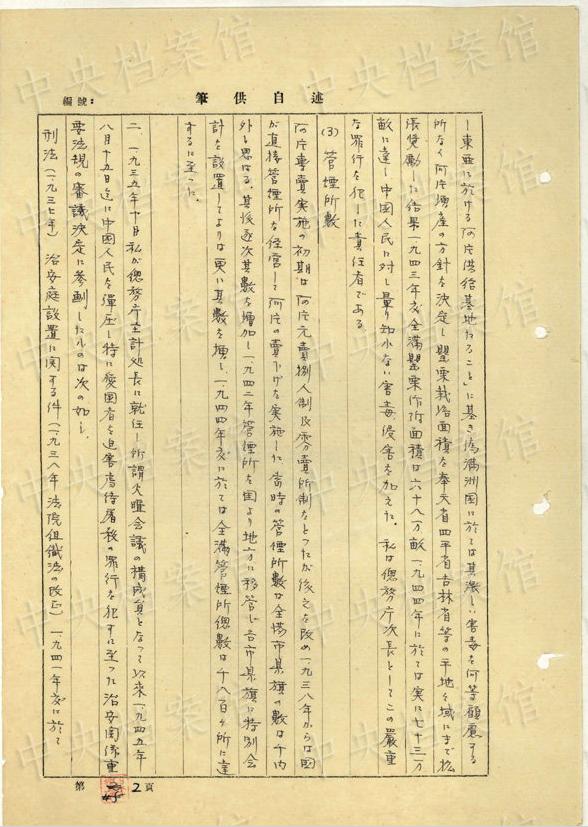 筆供自述
編號：
ー東亜に於ける阿片供給基地たること」に基き偽満洲国に於ては其激しい害毒を何等顧慮する
所なく阿片増産の方針を決定し罌粟栽培面積を奉天省四平省吉林省等の平地々域にまで拡
張奨励した結果一九四三年度全満罌粟作附面積は六十八万畝、一九四四年に於ては実に七十三万
畝に達し中国人民に対し量り知れない害毒侵害を加えた。私は總務庁次長としてこの嚴重
な罪行を犯した責任者である
(3) 管煙所數
阿片專賣実施の初期は阿片元賣捌人制及零賣所制をとったが後之を改め一九三八年からは国
が直接管煙所を経営して阿片の賣下げを実施した 當時の管煙所數は全満市県旗の數は千内
外と思はる、其後逐次其數を増加し一九四二年管煙所を国より地方に移管し各市県旗に特別会
計を設置してよりは更に其數を増し、一九四四年度に於ては全満管煙所總數は千八百ヶ所に達
するに至った。
二、一九三五年十月私が總務庁主計処長に就任し所謂火曜会議の構成員となって以来一九四五年
八月十五日迄に中國人民を彈圧し特に愛国者を迫害虐待屠殺の罪行を犯すに至った治安関係重
要法規の審議決定に参劃したものは次の如し、
刑法(一九三七年) 治安庭設置に関する件(一九三八年法院組織法の改正) 一九四一年度に於て
第 2 頁
中央档案馆